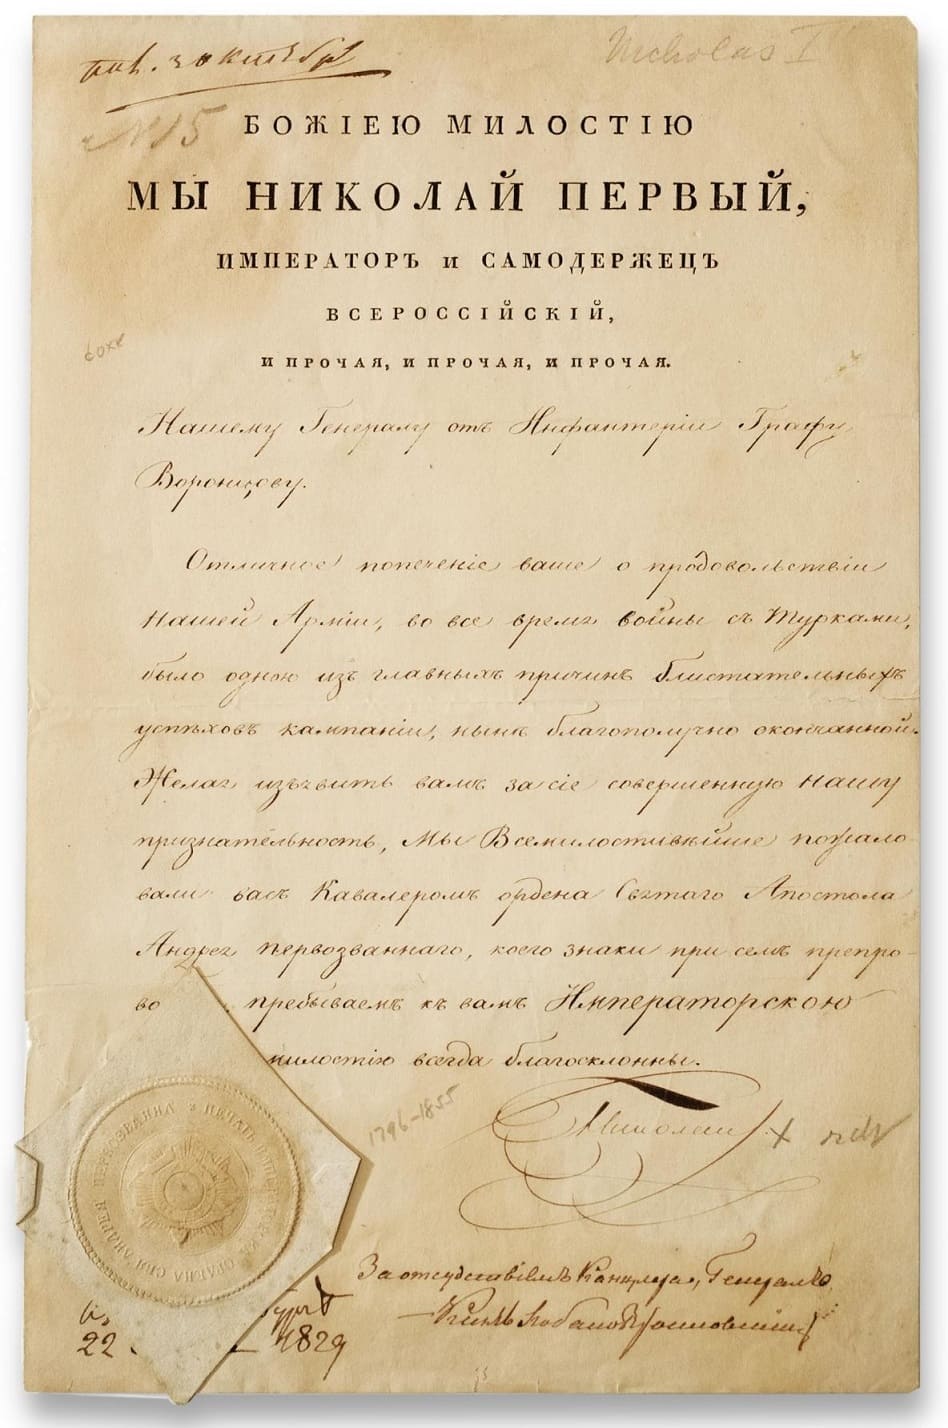 пол. 30 Октября
Nicholas I
№ 15
БОЖІЕЮ МИЛОСТІЮ
МЫ НИКОЛАЙ ПЕРВЫЙ,
ИМПЕРАТОРЪ и САМОДЕРЖЕЦЪ
ВСЕРОССІЙСКІЙ,
И ПРОЧАЯ, И ПРОЧАЯ, И ПРОЧАЯ.
Нашему Генералу отъ Инфантеріи Графу
Воронцову.
Отличное попеченіе ваше о продовольствіи
Нашей Арміи, во все время войны съ Турками,
было одною изъ главныхъ причинъ блистательныхъ
успѣховъ кампаніи, нынѣ благополучно оконченной.
Желая изъявить вамъ за сіе совершенную Нашу
признательность, Мы Всемилостивѣйше пожало-
вали васъ Кавалеромъ ордена Святаго Апостола
Андрея Первозваннаго, коего знаки при семъ препро-
во пребываемъ къ вамъ Императорскою
милостію всегда благосклонны.
1796-1855
Николай
За отсутствіемъ Канцлера, Генералъ
Князь Лобановъ Ростовскій
22 1829